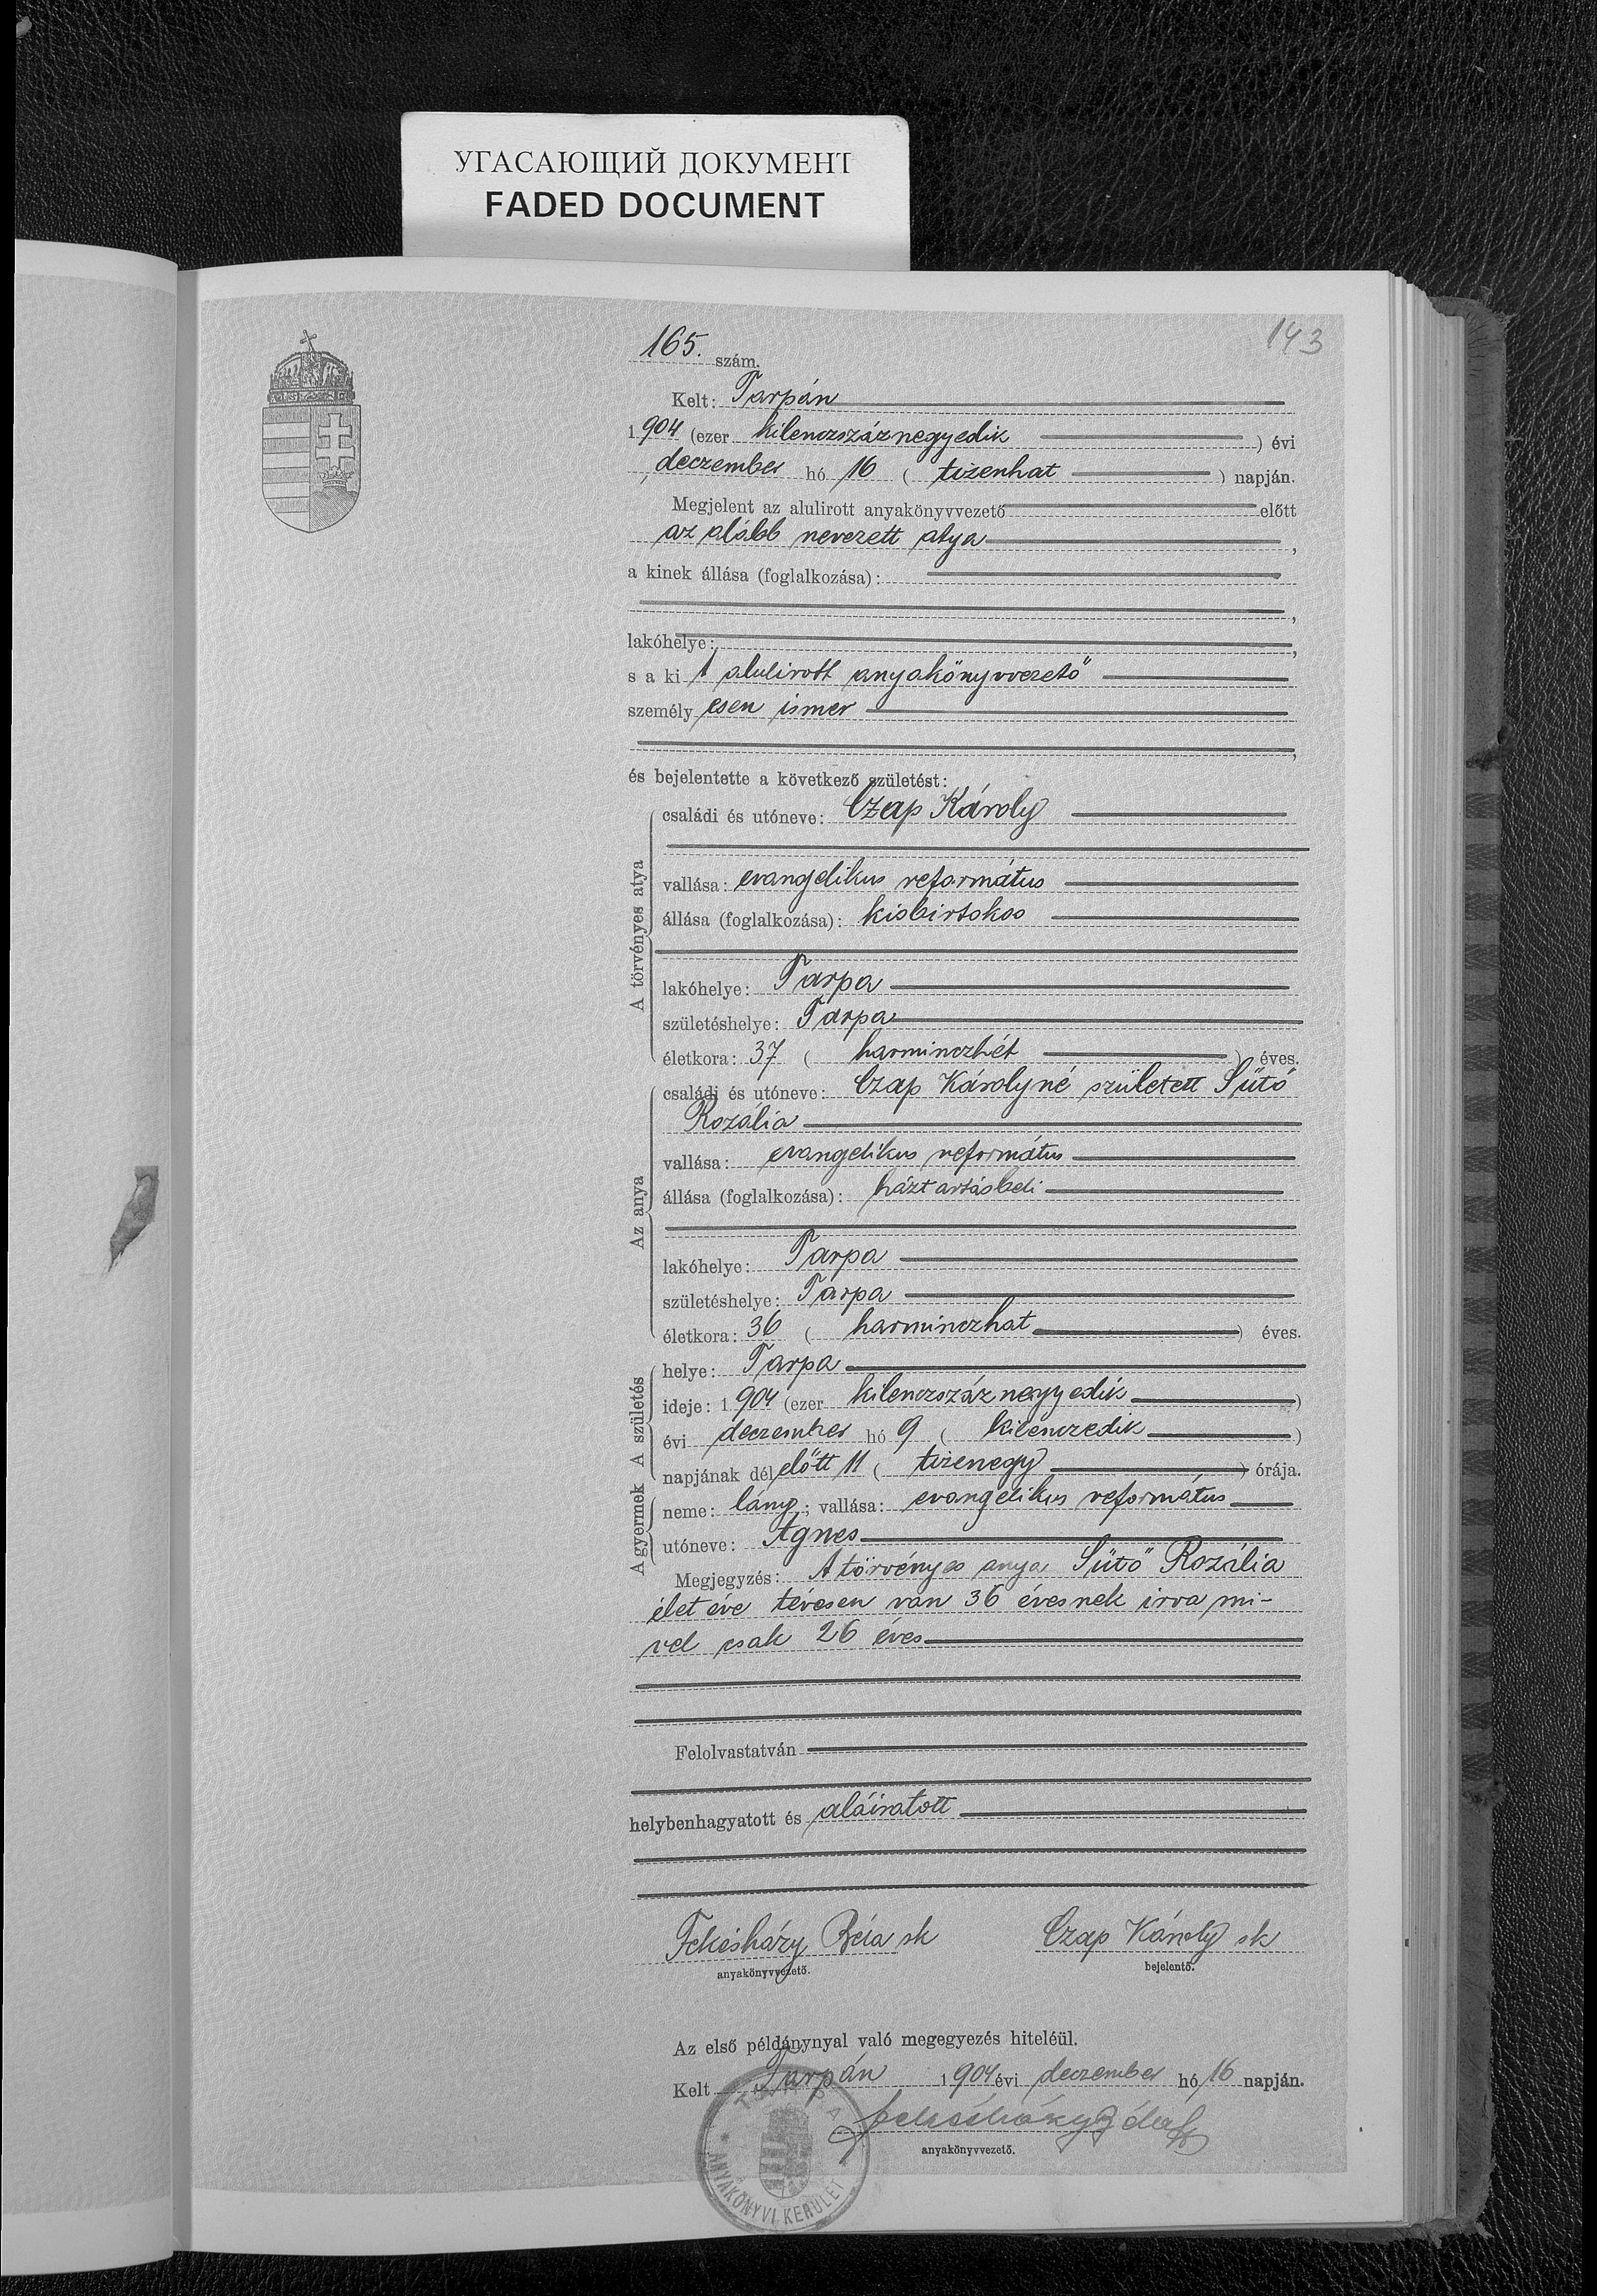 УГАСАЮЩИЙ ДОКУМЕНТ
FADED DOCUMENT
143
165. szám.
Kelt: Tarpán
1904 (ezer kilenczszáznegyedik ) évi
deczember hó 16 ( tizenhat ) napján.
Megjelent az alulirott anyakönyvvezető előtt
az alább nevezett atya ,
a kinek állása (foglalkozása):
,
lakóhelye: ,
s a ki t alulirott anyakönyvvezető
személy esen ismer
,
és bejelentette a következő születést:
A törvényes atya
családi és utóneve: Czap Károly
vallása: evangelikus református
állása (foglalkozása): kisbirtokos
lakóhelye: Tarpa
születéshelye: Tarpa
életkora: 37 ( harminczhét ) éves.
Az anya
családi és utóneve: Czap Károlyné született Sütő
Rozália
vallása: evangelikus református
állása (foglalkozása): háztartásbeli
lakóhelye: Tarpa
születéshelye: Tarpa
életkora: 36 ( harminczhat ) éves.
A születés
helye: Tarpa
ideje: 1904 (ezer kilenczszáznegyedik )
évi deczember hó 9 ( kilenczedik )
napjának dél előtt 11 ( tizenegy ) órája.
A gyermek
neme: lány; vallása: evangelikus református
utóneve: Ágnes
Megjegyzés: A törvényes anya Sütő Rozália
élet éve tévesen van 36 évesnek irva mi-
vel csak 26 éves
Felolvastatván
helybenhagyatott és aláiratott
Fekésházy Béla sk Czap Károly sk
anyakönyvvezető. bejelentő.
Az első példánynyal való megegyezés hiteléül.
Kelt Tarpán 1904 évi deczember hó 16 napján.
Fekésházy Béla
anyakönyvvezető.
TARPA
ANYAKÖNYVI KERÜLET